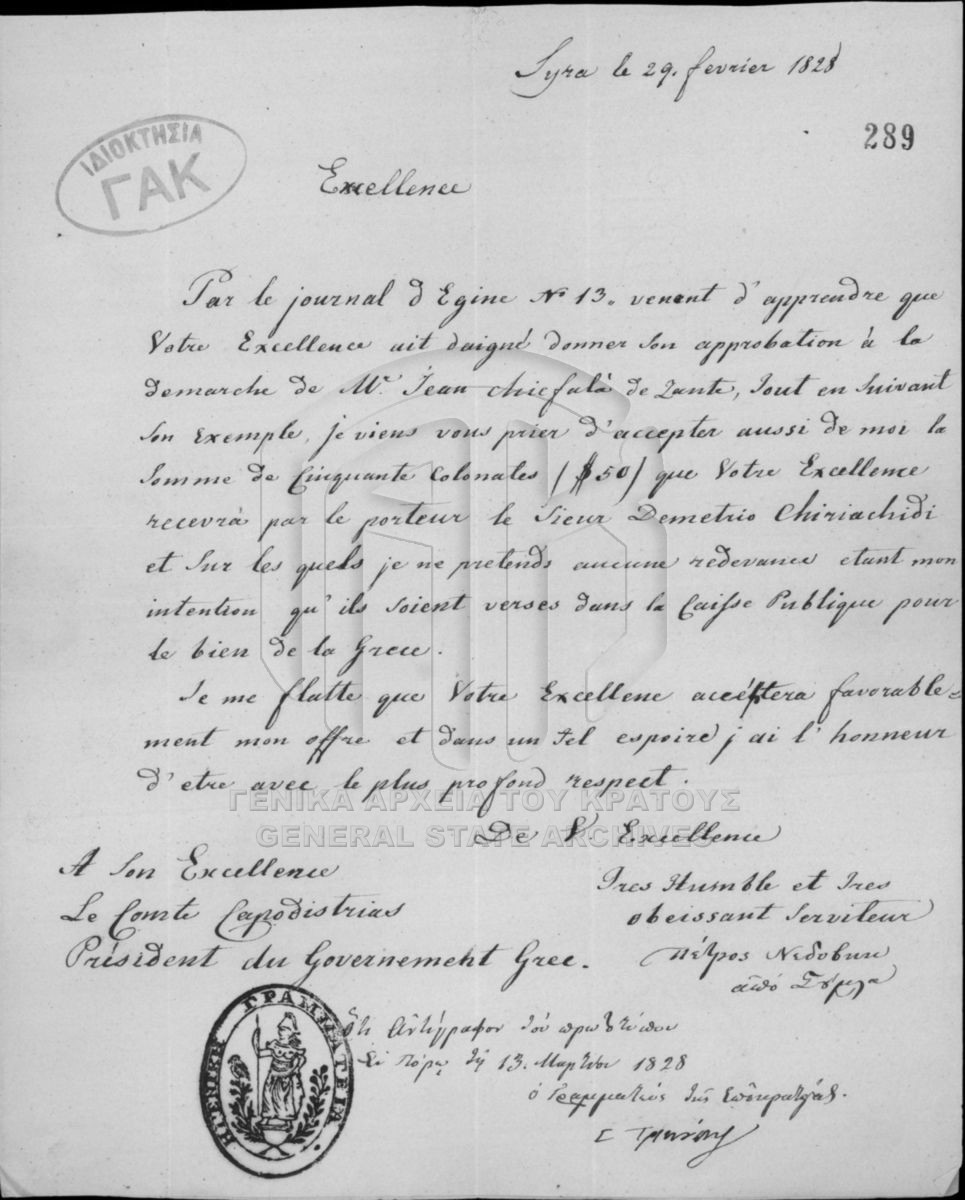 Syra le 29. fevrier 1828
289
ΙΔΙΟΚΤΗΣΙΑ
ΓΑΚ
Excellence
Par le journal d Egine No 13. venant d'apprendre que
Votre Excellence ait daigné donner son approbation à la
demarche de Mr. Jean Chiefalà de Zante, tout en suivant
son exemple, je viens vous prier d'accepter aussi de moi la
somme de Cinquante Colonates ($ 50) que Votre Excellence
recevrà par le porteur le Sieur Demetrio Chiriachidi
et sur les quels je ne pretends aucune redevance etant mon
intention qu'ils soient verses dans la Caisse Publique pour
le bien de la Grece.
Je me flatte que Votre Excellence acceptera favorable=
ment mon offre et dans un tel espoire j ai l'honneur
d'etre avec le plus profond respect.
ΓΕΝΙΚΑ ΑΡΧΕΙΑ ΤΟΥ ΚΡΑΤΟΥΣ
GENERAL STATE ARCHIVES
De V. Excellence
A Son Excellence
Le Comte Capodistrias
Président du Governement Grec.
Tres Humble et Tres
obeissant Serviteur
Πέτρος
ἀπὸ
Ὅτι ἀντίγραφον τοῦ πρωτοτύπου
Ἐν Πόρῳ τῇ 13. Μαρτίου 1828
ὁ Γραμματεὺς τῆς Ἐπικρατείας.
Σ Τρικούπης
ΓΡΑΜΜΑΤΕΙΑ